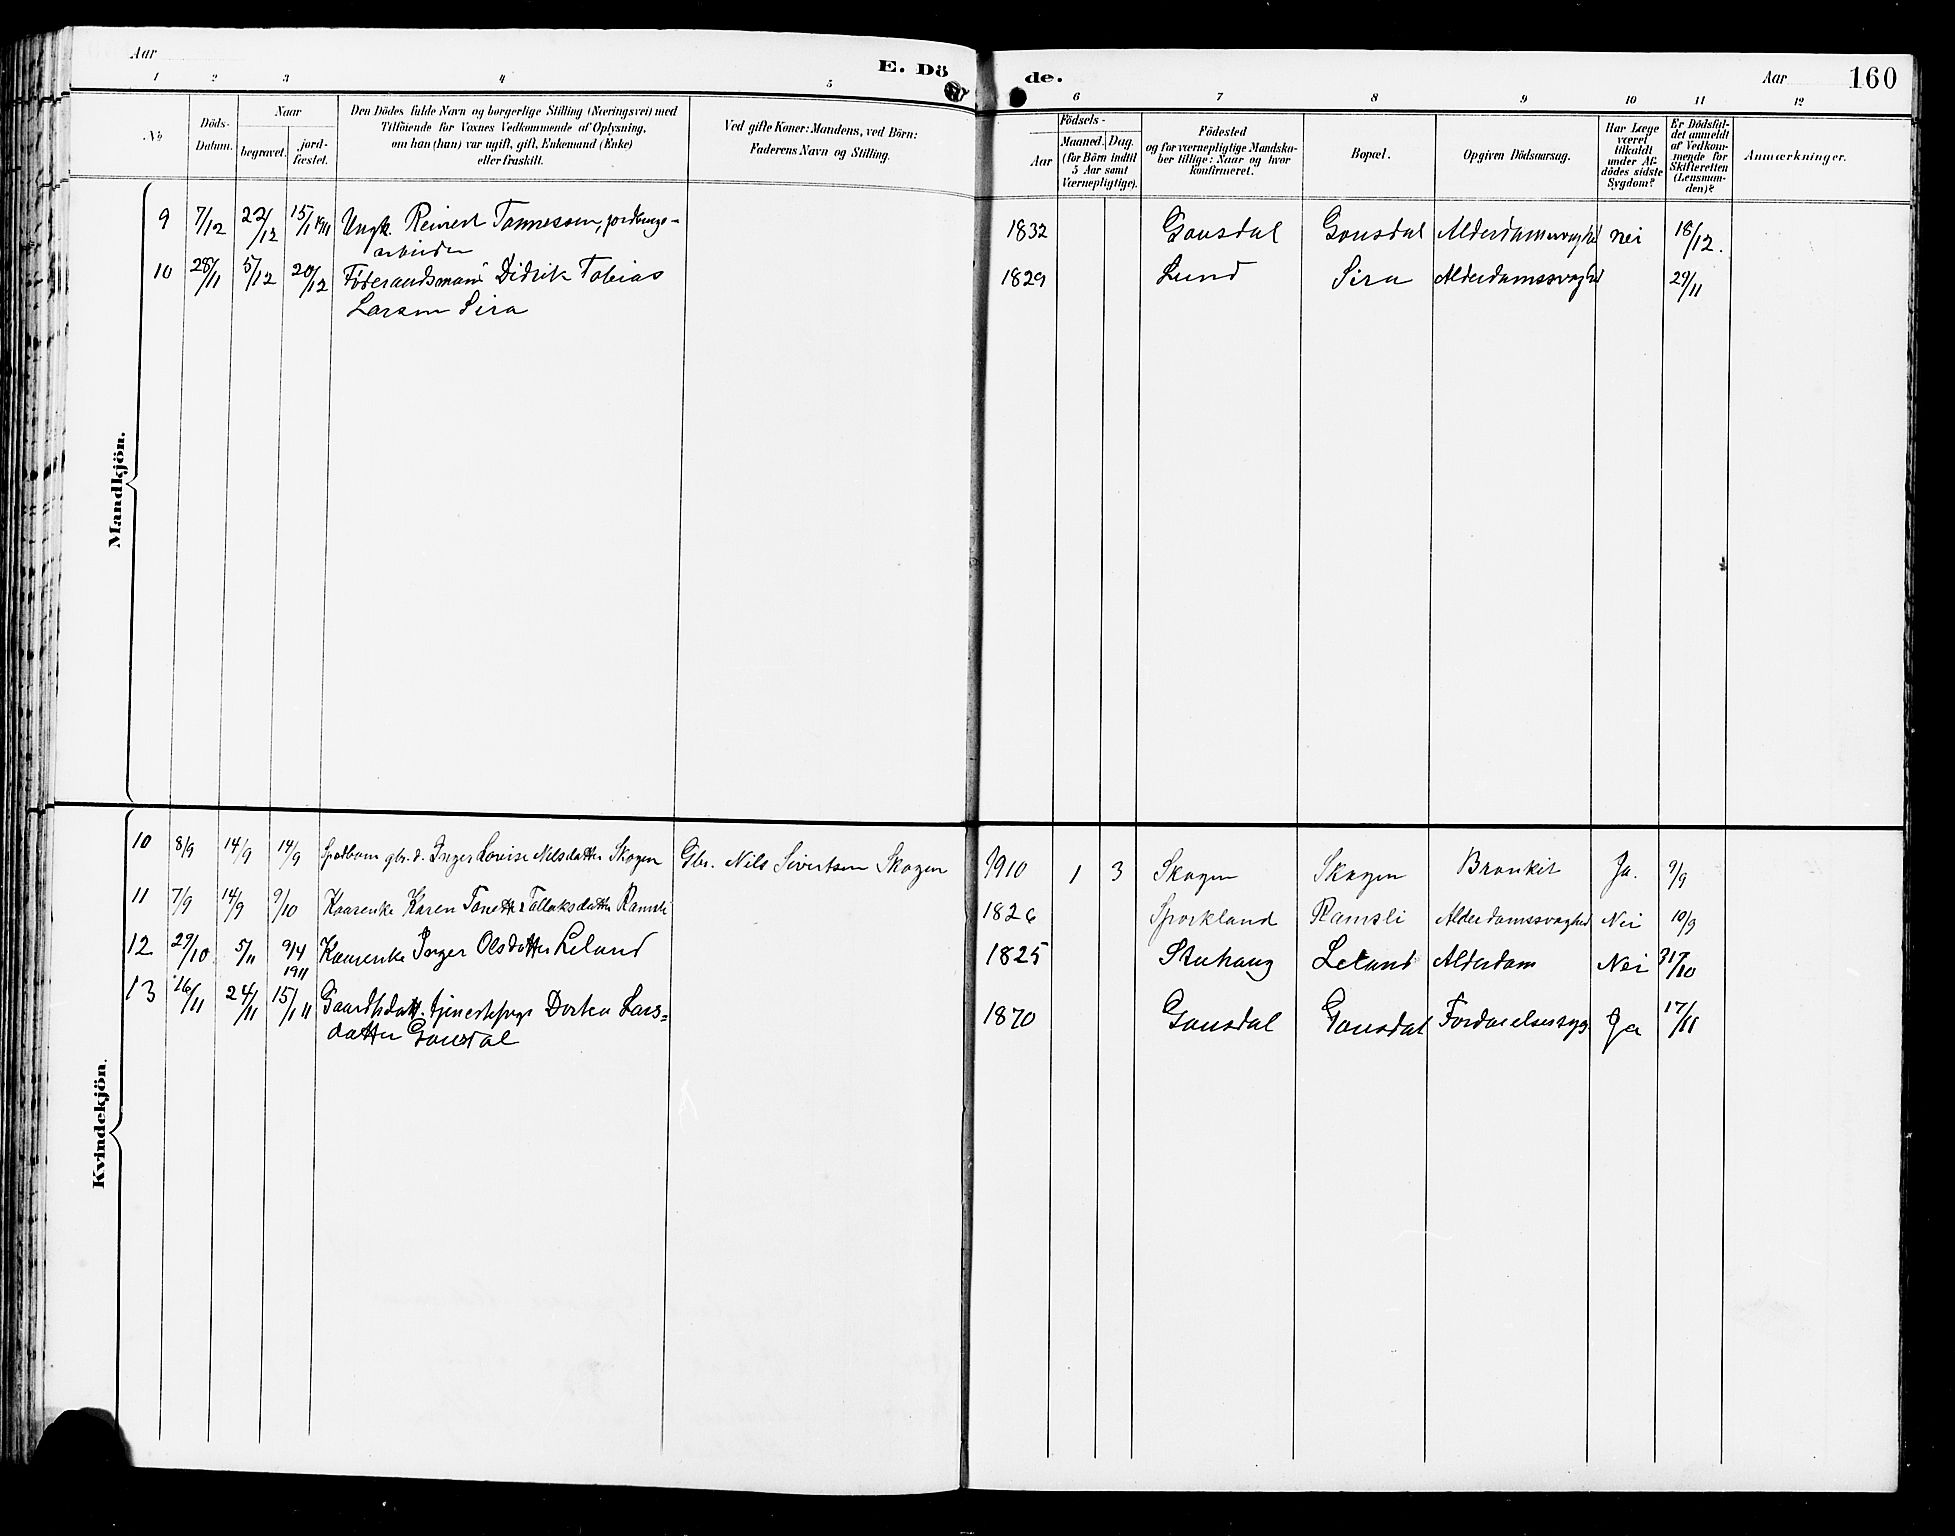 Aar
E. Dö
de.
Aar
160
1 2 3 4 5 6 7 8 9 10 11 12
No
Döds-Datum.
Naar
begravet.
jord-fæstet.
Den Dödes fulde Navn og borgerlige Stilling (Næringsvei) med
Tilföiende for Voxnes Vedkommende af Oplysning,
om han (hun) var ugift, gift, Enkemand (Enke)
eller fraskilt.
Ved gifte Koner: Mandens, ved Börn:
Faderens Navn og Stilling.
Födsels-
Aar
Maaned. Dag.
(for Börn indtil
5 Aar samt
Værnepligtige).
Födested
og for værnepligtige Mandska-
ber tillige: Naar og hvor
konfirmeret.
Bopæl.
Opgiven Dödsaarsag.
Har Læge
været
tilkaldt
under Af-
dödes sidste
Sygdom?
Er Dödsfal-
det anmeldt
af Vedkom-
mende for
Skifteretten
(Lensman-
den)?
Anmærkninger.
Mandkjön.
9 7/12 22/12 15/1 1911 Ungk. Reinert Tønnessen, jordbrugs-
arbeider
1832 Gousdal Gousdal Alderdomssvaghed nei 18/12.
10 28/11 5/12 20/12 Føderaadsmand Didrik Tobias
Larsen Sira
1829 Lund Sira Alderdomssvaghed 29/11
Kvindekjön.
10 8/9 14/9 14/9 Spædbarn gbr. d. Inger Lovise Nilsdatter Skogen Gbr. Nils Sivertsen Skogen 1910 1 3 Skogen Skogen Bronkit Ja. 9/9
11 7/9 14/9 9/10 Kaarenke Karen Tonette Tollaksdatter Ramsli 1826 Sporkland Ramsli Alderdomssvaghed Nei 10/9
12 29/10 5/11 9/4 1911 Kaarenke Inger Olsdatter Leland 1825 Stuhaug Leland Alderdom Nei 31/10
13 16/11 24/11 15/1 11 Gaardbdatt. tjenestepige Dortea Lars-
datter Gousdal
1870 Gousdal Gousdal Fordøielsessyg. Ja 17/11